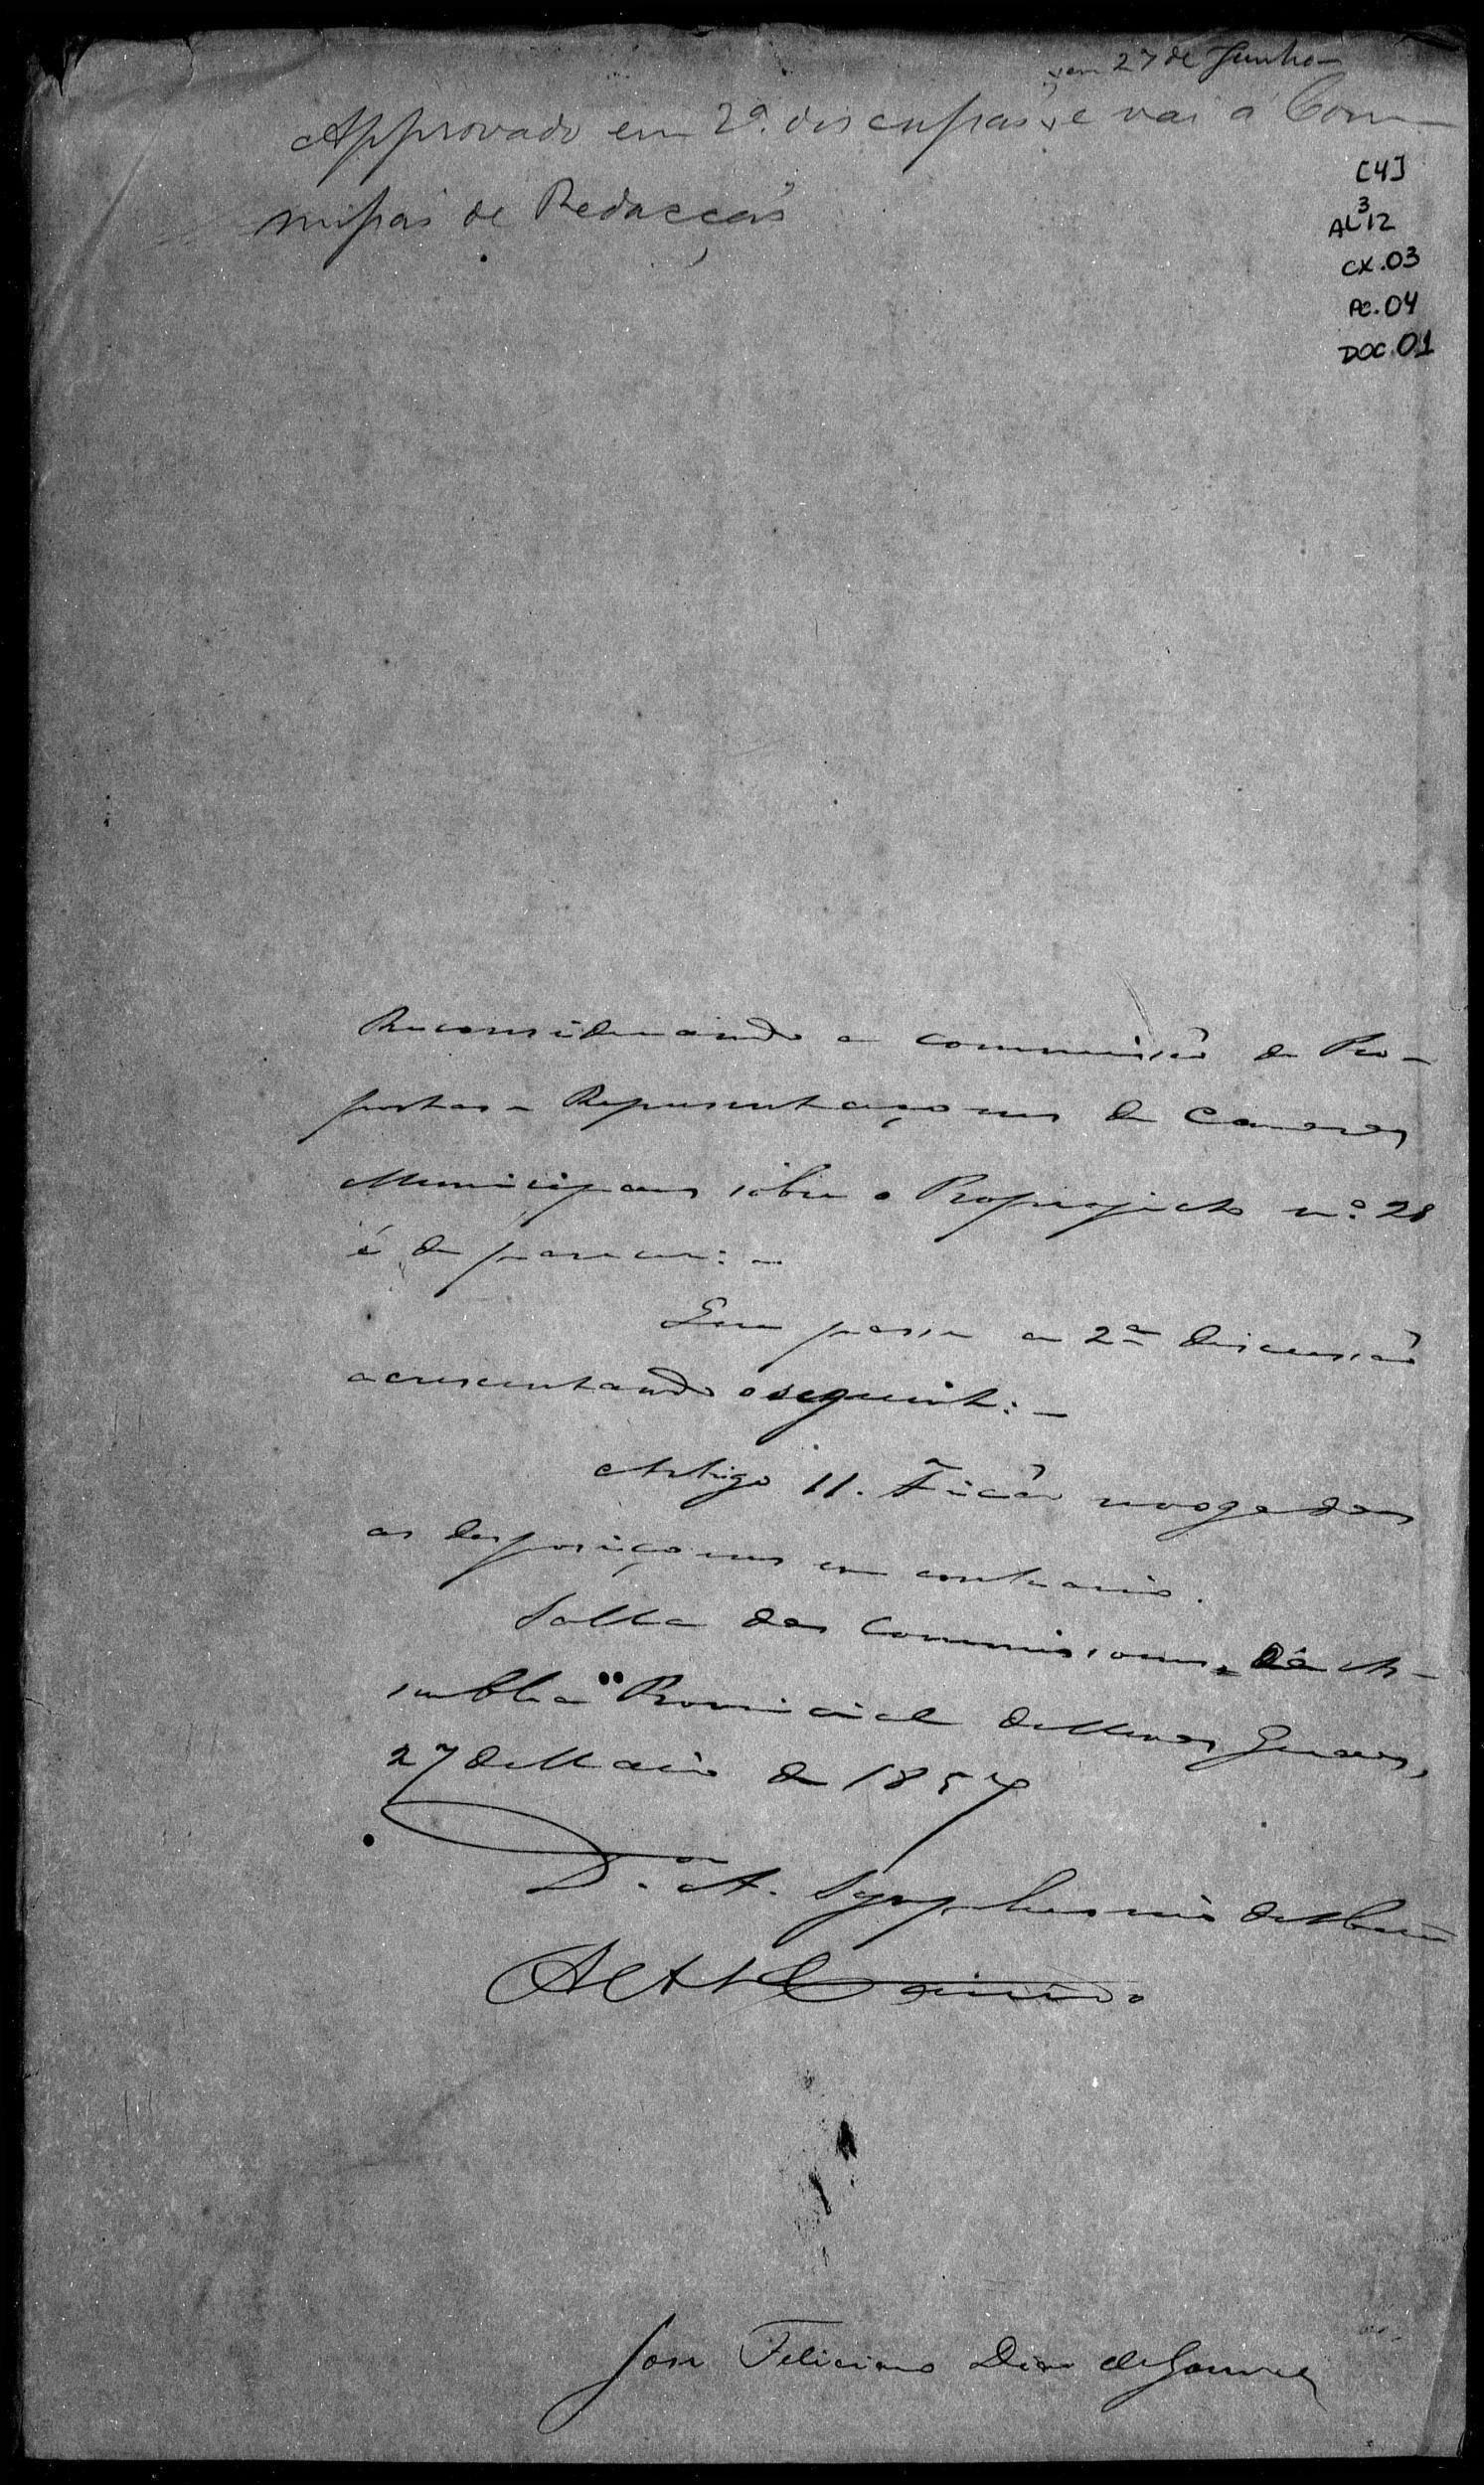 em 27 de Junho
Approvado em 2ª. discussão, e vai á Com-
missão de Redacção
[4]
AL 3 12
CX.03
PC.04
DOC.01
Reconsiderando a commissão de Pro-
postas e Representaçoens de Camaras
Municipaes sobre o Projecto nº. 28
é de parecer: -
Que passe a 2ª discussão
acrescentando o seguinte: -
Artigo 11. Ficão revogadas
as desposiçoens em contrario.
Salla das Commissoens da As-
semblea Provincial de Minas Geraes,
27 de Maio de 1857
Dor. A. Symphronio de Abreu
José Feliciano Dias de Gouvea